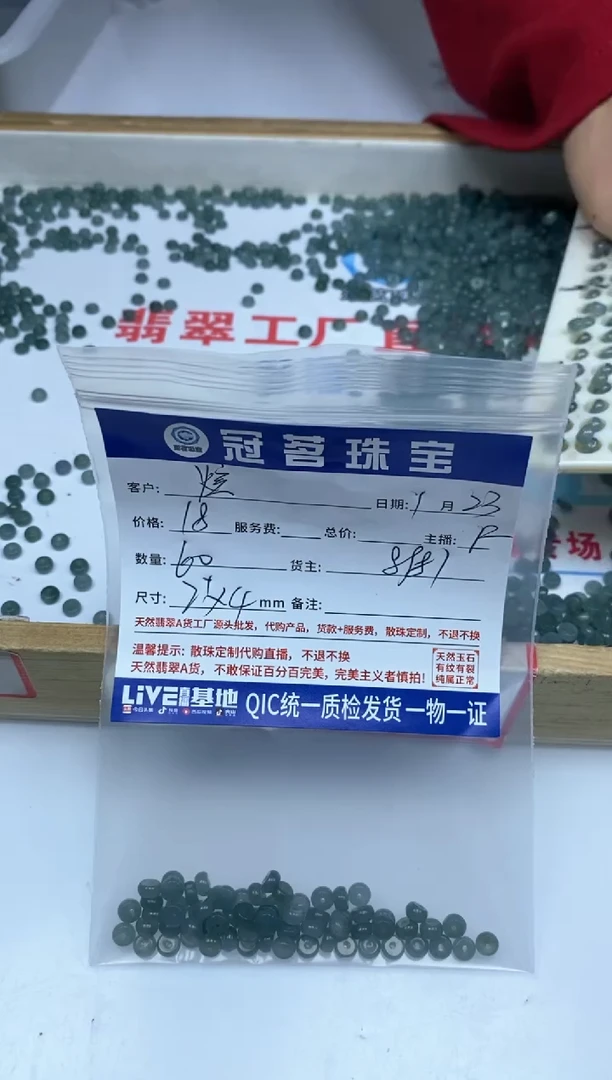 翡翠工厂直
场
冠茗珠宝
客户: 炫 日期: 1 月 23
价格: 18 服务费: 总价: 主播:
数量: 60 货主:
尺寸: mm 备注:
天然翡翠A货工厂源头批发，代购产品，货款+服务费，散珠定制，不退不换
温馨提示: 散珠定制代购直播，不退不换
天然翡翠A货，不敢保证百分百完美，完美主义者慎拍!
天然玉石
有纹有裂
纯属正常
LiVE直播基地 QIC统一质检发货 一物一证